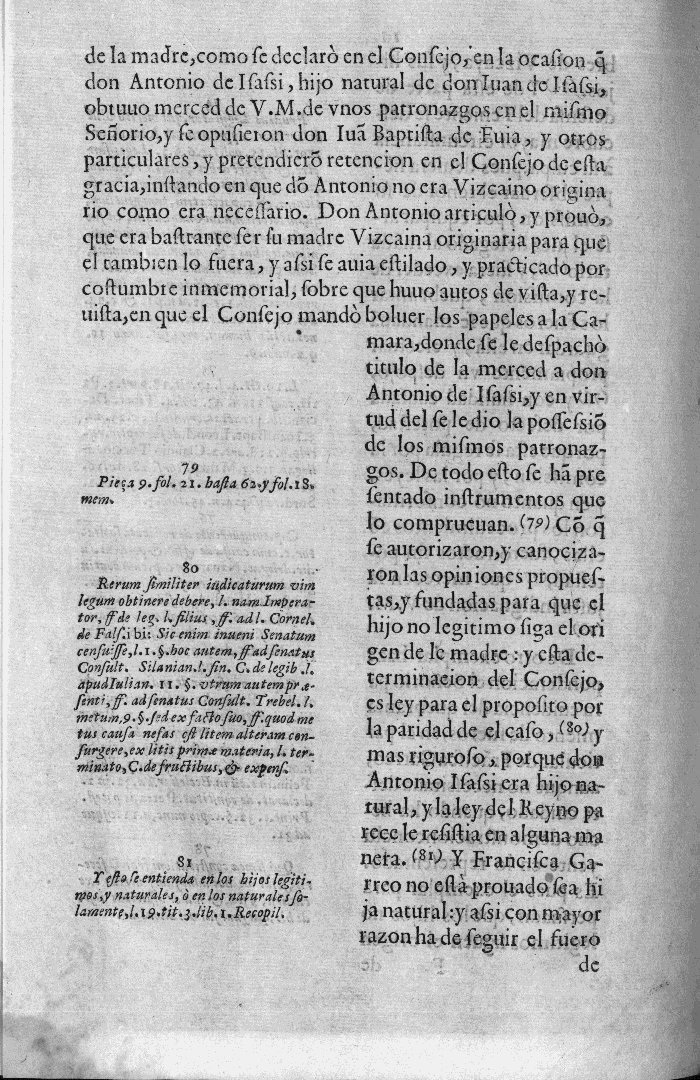 de la madre,como se declarò en el Consejo, en la ocasion q̃
don Antonio de Isassi, hijo natural de don Iuan de Isassi,
obtuuo merced de V.M.de vnos patronazgos en el mismo
Señorio,y se opusieron don Iuã Baptista de Euia, y otros
particulares, y pretendierõ retencion en el Consejo de esta
gracia,instando en que dõ Antonio no era Vizcaino origina
rio como era necessario. Don Antonio articulò, y prouò,
que era bastrante ser su madre Vizcaina originaria para que
el tambien lo fuera, y assi se auia estilado, y practicado por
costumbre inmemorial, sobre que huuo autos de vista,y re-
uista,en que el Consejo mandò boluer los papeles a la Ca-
mara,donde se le despachò
titulo de la merced a don
Antonio de Isassi,y en vir-
tud del se le dio la possessiõ
de los mismos patronaz-
gos. De todo esto se hã pre
sentado instrumentos que
lo comprueuan. (79) Cõ q̃
se autorizaron,y canociza-
ron las opiniones propues-
tas,y fundadas para que el
hijo no legitimo siga el ori
gen de le madre: y esta de-
terminacion del Consejo,
es ley para el proposito por
la paridad de el caso, (80) y
mas riguroso, porque don
Antonio Isassi era hijo na-
tural, y la ley del Reyno pa
rece le resistia en alguna ma
nera. (81) Y Francisca Ga-
rreo no està prouado sea hi
ja natural:y assi con mayor
razon ha de seguir el fuero
de
79
Pieça 9. fol. 21. hasta 62. y fol. 18.
mem.
80
Rerum similiter iudicaturum vim
legum obtinere debere, l. nam Impera-
tor, ff de leg. l. filius, ff. ad l. Cornel.
de Fals. ibi: Sic enim inueni Senatum
censuisse, l. 1. §. hoc autem, ff ad senatus
Consult. Silanian. l. fin. C. de legib. l.
apud Iulian. 11. §. vtrum autem præ-
senti, ff. ad senatus Consult. Trebel. l.
metum, 9. §. sed ex facto suo, ff. quod me
tus causa nefas est litem alteram con-
surgere, ex litis primæ materia, l. ter-
minato, C. de fructibus, & expens.
81
Y esto se entienda en los hijos legiti-
mos, y naturales, ò en los naturales so-
lamente, l. 19. tit. 3. lib. 1. Recopil.